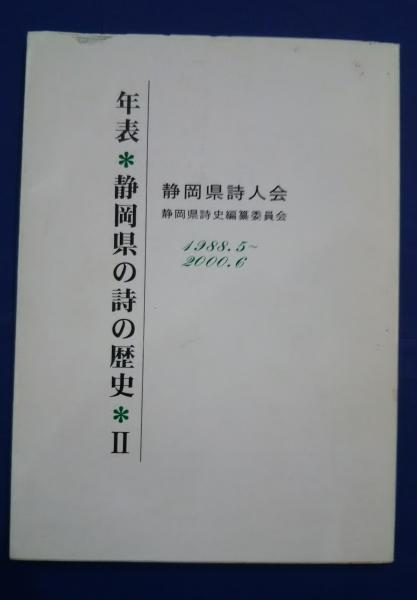 年表*静岡県の詩の歴史*II
静岡県詩人会
静岡県詩史編纂委員会
1988.5~
2000.6